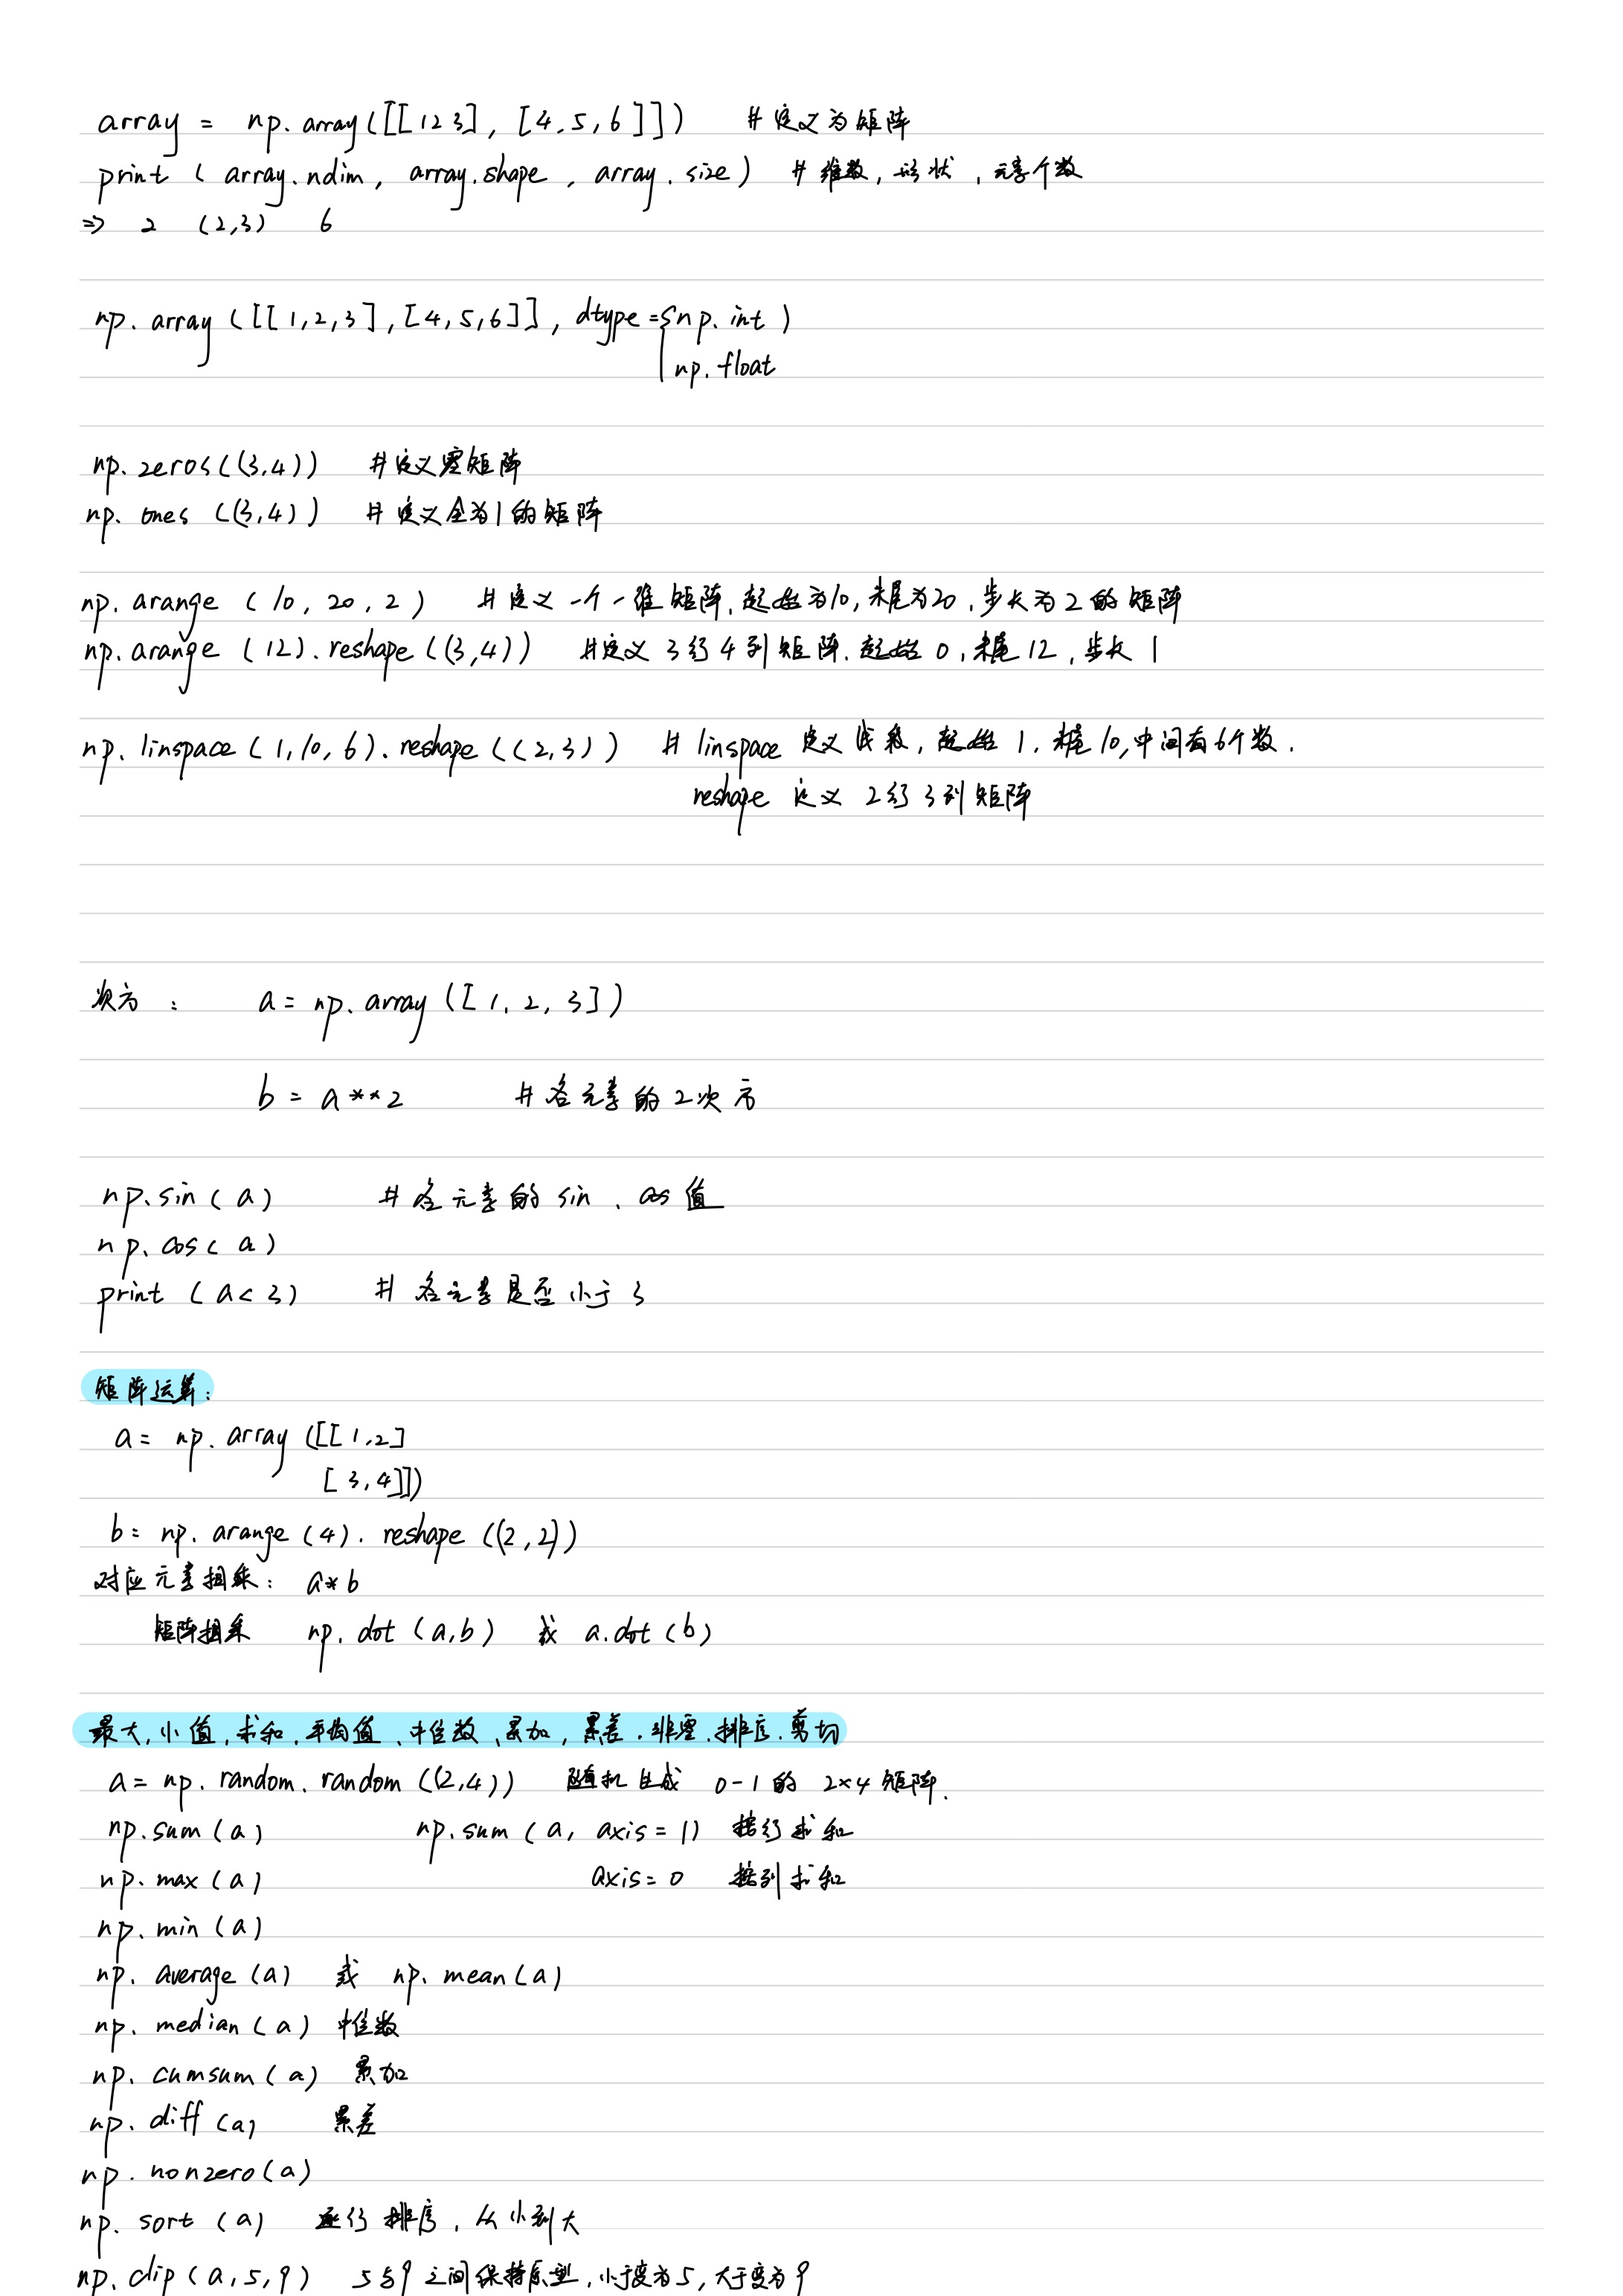 array = np.array([[1 2 3], [4,5,6]]) #定义为矩阵
print (array.ndim, array.shape, array.size) #维数,形状,元素个数
=> 2 (2,3) 6
np.array([[1,2,3],[4,5,6]], dtype={np.int)
np.float
np.zeros((3,4)) #定义零矩阵
np.ones((3,4)) #定义全为1的矩阵
np.arange(10,20,2) #定义一个一维矩阵,起始为10,末尾为20,步长为2的矩阵
np.arange(12).reshape((3,4)) #定义3行4列矩阵.起始0,末尾12,步长1
np.linspace(1,10,6).reshape((2,3)) #linspace 定义线段,起始1,末尾10,中间有6个数.
reshape 定义 2行3列矩阵
次方: a = np.array([1,2,3])
b = a**2 #各元素的2次方
np.sin(a) #各元素的sin、cos值
np.cos(a)
print (a<3) #各元素是否小于3
矩阵运算:
a = np.array([[1,2]
[3,4]])
b = np.arange(4).reshape((2,2))
对应元素相乘: a*b
矩阵相乘 np.dot(a,b) 或 a.dot(b)
最大,小值,求和,平均值、中位数、累加,累差.非零.排序.剪切
a = np.random.random((2,4)) 随机生成 0-1的 2×4矩阵.
np.sum(a) np.sum(a, axis=1) 按行求和
np.max(a) axis=0 按列求和
np.min(a)
np.average(a) 或 np.mean(a)
np.median(a) 中位数
np.cumsum(a) 累加
np.diff(a) 累差
np.nonzero(a)
np.sort(a) 逐行排序,从小到大
np.clip(a,5,9) 5与9之间保持原型,小于变为5,大于变为9